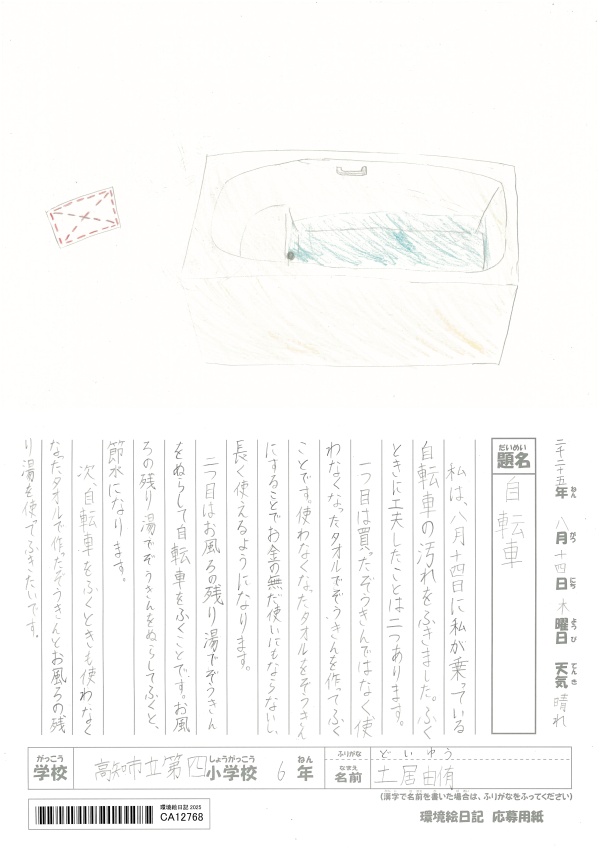 二千二十五年 八月十四日 木曜日 天気 晴れ
ねん がつ にち ようび てんき
だいめい
題名
自転車
私は、八月十四日に私が乗っている
自転車の汚れをふきました。ふく
ときに工夫したことは二つあります。
一つ目は買ったぞうきんではなく使
わなくなったタオルでぞうきんを作ってふく
ことです。使わなくなったタオルをぞうきん
にすることでお金の無だ使いにもならないし、
長く使えるようになります。
二つ目はお風ろの残り湯でぞうきん
をぬらして自転車をふくことです。お風
ろの残り湯でぞうきんをぬらしてふくと、
節水になります。
次、自転車をふくときも使わなく
なったタオルで作ったぞうきんとお風ろの残
り湯を使ってふきたいです。
がっこう しょうがっこう ねん
学校 高知市立第四小学校 6年
ふりがな どい ゆう
なまえ
名前 土居由侑
(漢字で名前を書いた場合は、ふりがなをふってください)
環境絵日記 2025
CA12768
環境絵日記 応募用紙